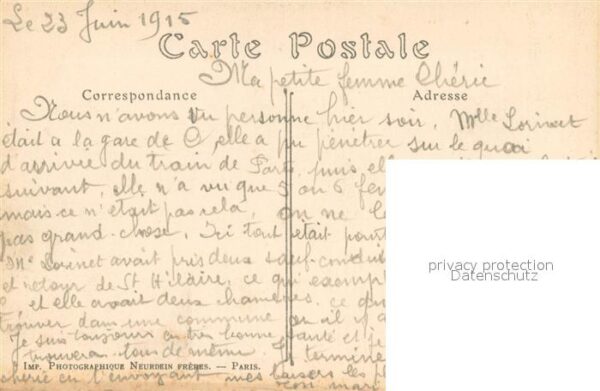 Le 23 Juin 1915
Carte Postale
Ma petite femme Chérie
Correspondance
Adresse
Nous n'avons vu personne hier soir. Mlle Lorinet
était a la gare de C, elle a pu pénétrer sur le quai
d'arrivée du train de Paris, puis, elle
suivant, elle n'a vu que 5 ou 6 fem
mais ce n'était pas cela, on ne le
pas grand-chose. Ici tout était pour
Me Lorinet avait pris deux sauf-conduits
et retour de St Hilaire, ce qui exemp
et elle avait deux chambres, ce qu
trouver dans une commune où il y a
Je suis toujours en très bonne santé et j
trouvera tout de même. Je termine
chérie en t'envoyant mes baisers les pl
ton mari
privacy protection
Datenschutz
IMP. PHOTOGRAPHIQUE NEURDEIN FRÈRES. — PARIS.